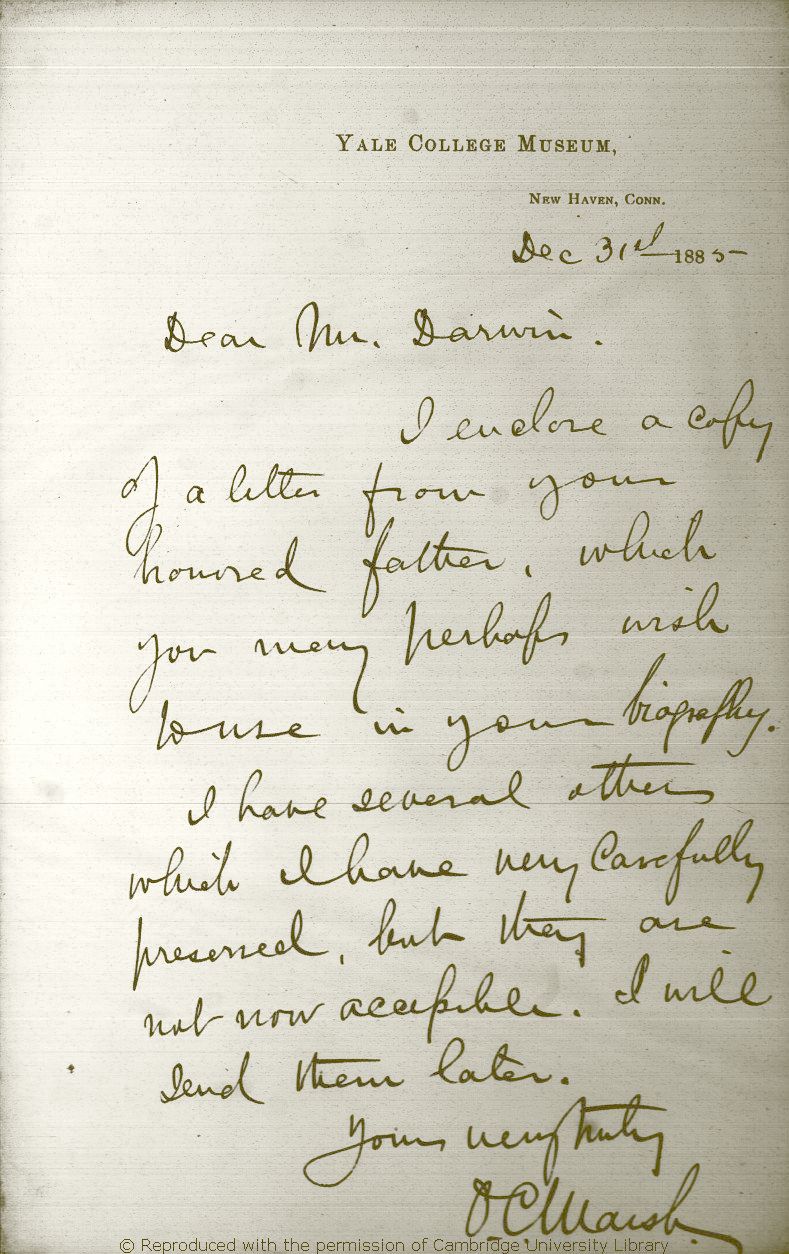 YALE COLLEGE MUSEUM,
NEW HAVEN, CONN.
Dec 31st 1885
Dear Mr. Darwin.
I enclose a copy
of a letter from your
honored father, which
you may perhaps wish
to use in your biography.
I have several others
which I have very carefully
preserved, but they are
not now accessible. I will
send them later.
Yours very truly
O. C. Marsh.
© Reproduced with the permission of Cambridge University Library